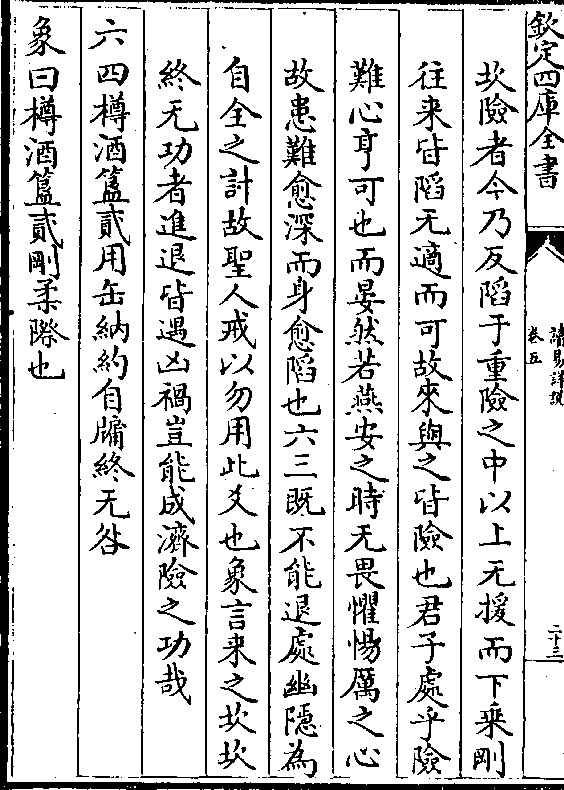 欽定四庫全書
讀易詳說
卷五
二十三
坎險者今乃反陷于重險之中以上无援而下乗剛
往来皆陷无適而可故來與之皆險也君子處乎險
難心亨可也而晏然若燕安之時无畏懼惕厲之心
故患難愈深而身愈陷也六三既不能退處幽隱為
自全之計故聖人戒以勿用此爻也象言来之坎坎
終无功者進退皆遇凶禍豈能成濟險之功哉
六四樽酒簋貳用缶納約自牖終无咎
象曰樽酒簋貳剛柔際也